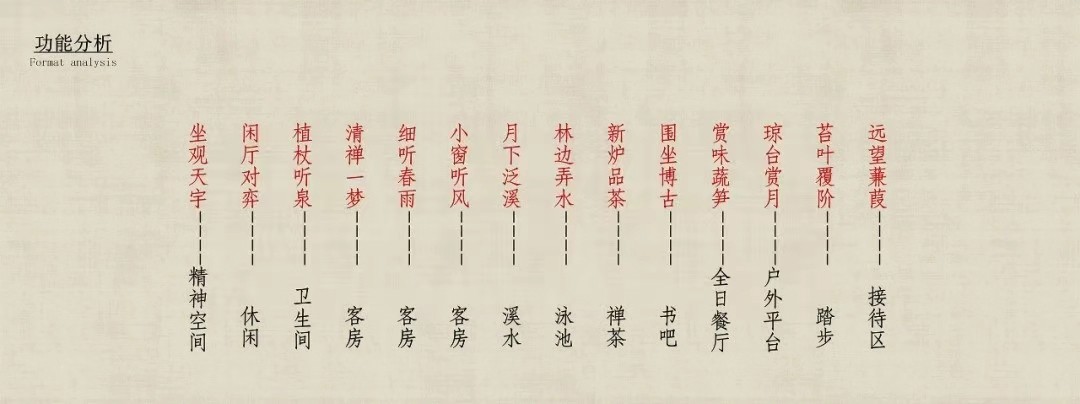 功能分析
Format analysis
远望蒹葭-----接待区
苔叶覆阶-----踏步
琼台赏月-----户外平台
赏味蔬笋-----全日餐厅
围坐博古-----书吧
新炉品茶-----禅茶
林边弄水-----泳池
月下泛溪-----溪水
小窗听风-----客房
细听春雨-----客房
清禅一梦-----客房
植杖听泉-----卫生间
闲厅对弈-----休闲
坐观天宇-----精神空间